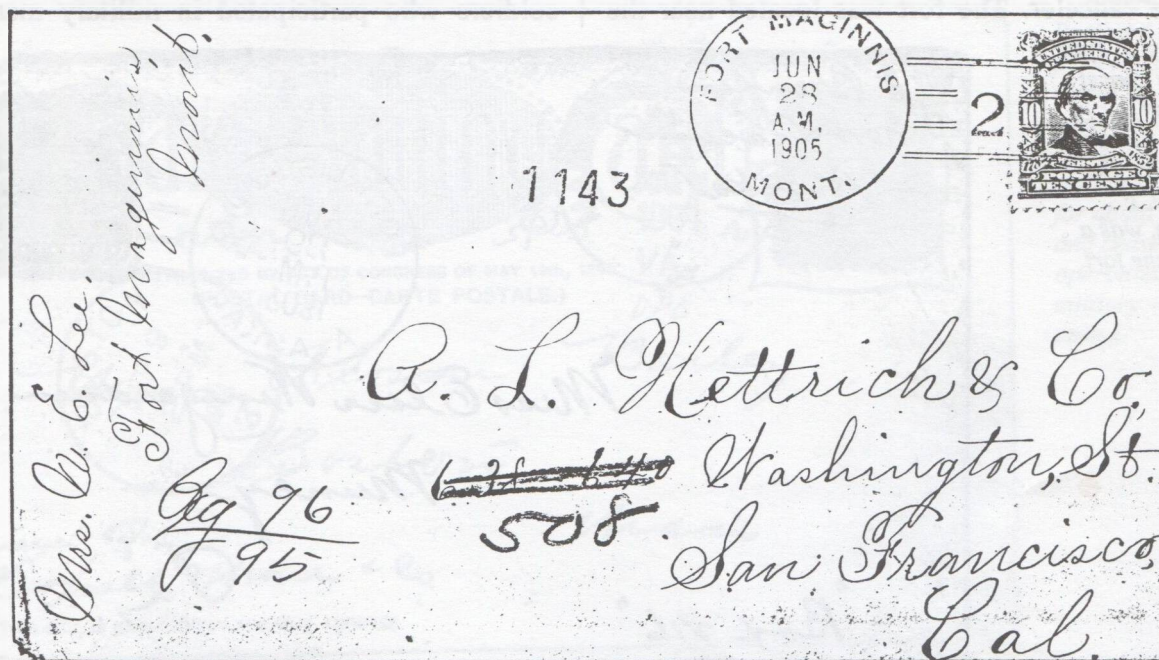 Mrs. W. E. Lee,
Fort Maginnis
Mont.
FORT MAGINNIS
JUN
28
A.M.
1905
MONT.
2
UNITED STATES
OF AMERICA
10 10
POSTAGE
TEN CENTS
1143
A. L. Hettrich & Co.
Washington, St.
508
San Francisco,
Cal.
Reg 96
95